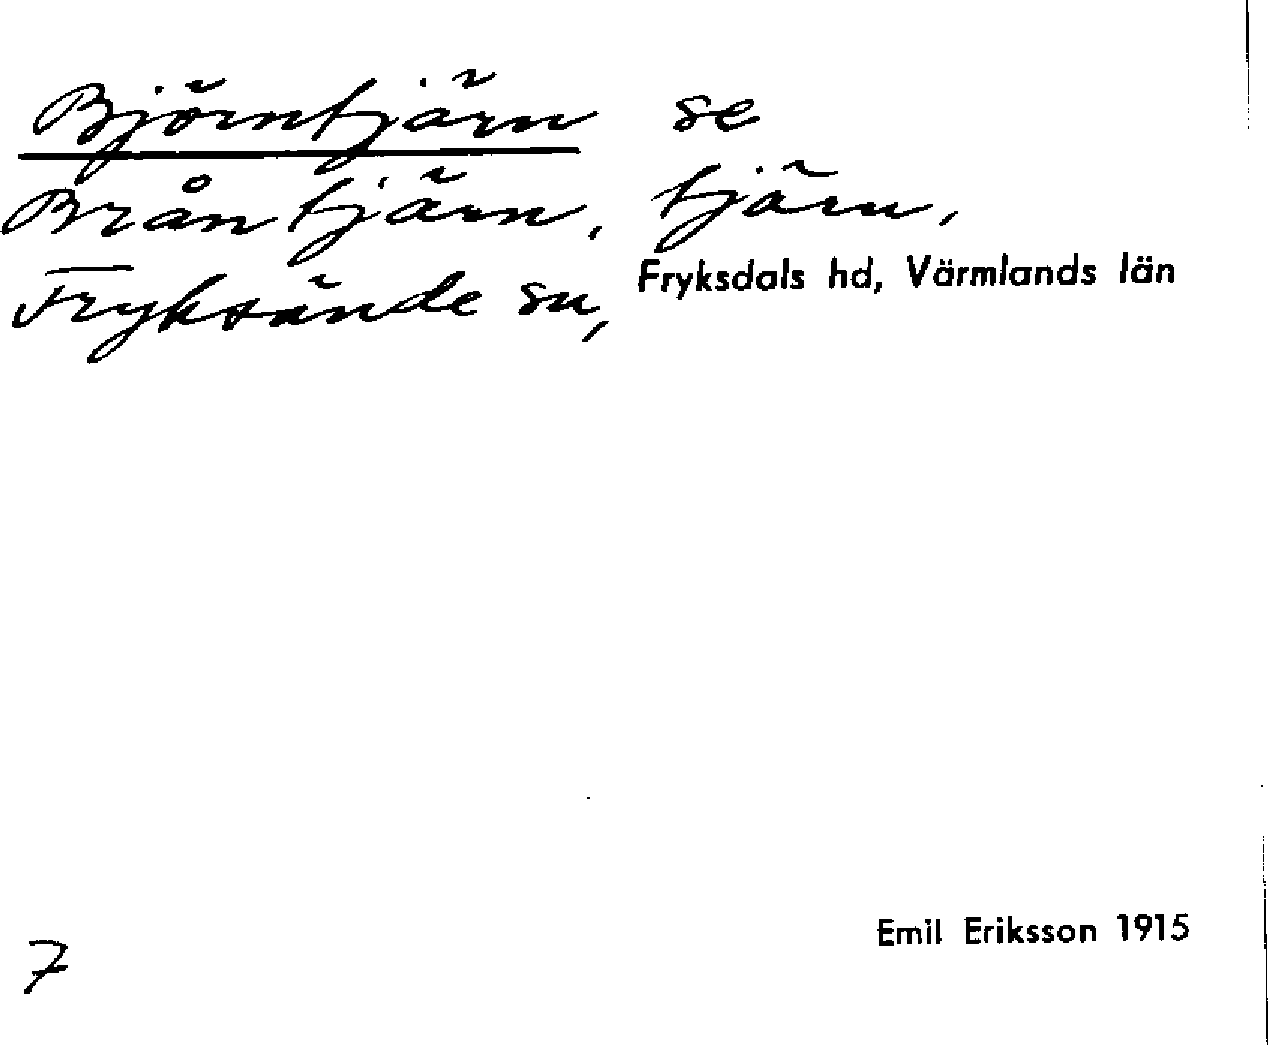 Björntjärn se
Bråntjärn, tjärn,
Fryksände sn, Fryksdals hd, Värmlands län
Emil Eriksson 1915
7